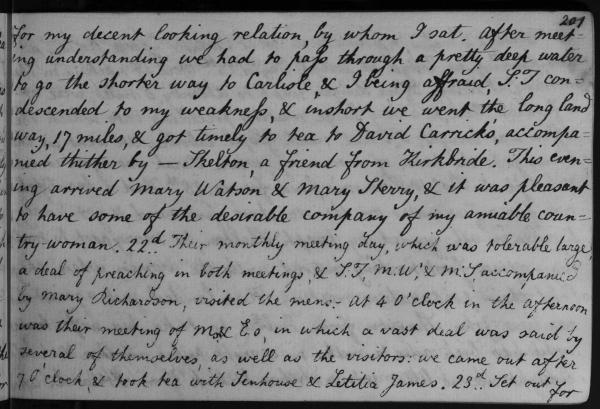 201
for my decent looking relation, by whom I sat. After meet-
ing understanding we had to pass through a pretty deep water
to go the shorter way to Carlisle, & I being affraid, S.T con=
descended to my weakness, & inshort we went the long land
way, 17 miles, & got timely to tea to David Carrick's, accompa=
nied thither by — Skelton, a friend from Kirkbride. This even=
ing arrived Mary Watson & Mary Sterry, & it was pleasant
to have some of the desirable company of my amiable coun=
try-woman. 22.d Their monthly meeting day, which was tolerable large,
a deal of preaching in both meetings, & S.T, M.W, & M.S, accompanied
by Mary Richardson, visited the mens:- at 4 O'clock in the afternoon
was their meeting of M & Es, in which a vast deal was said by
several of themselves as well as the visitors: we came out after
7 O'clock, & took tea with Senhouse & Letitia James. 23.d Set out
for